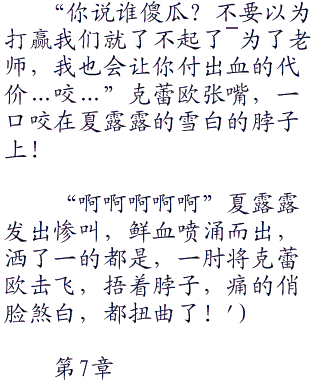 “你说谁傻瓜？不要以为
打赢我们就了不起了¯为了老
师，我也会让你付出血的代
价…咬…”克蕾欧张嘴，一
口咬在夏露露的雪白的脖子
上！
“啊啊啊啊啊”夏露露
发出惨叫，鲜血喷涌而出，
洒了一的都是，一肘将克蕾
欧击飞，捂着脖子，痛的俏
脸煞白，都扭曲了！′)
第7章